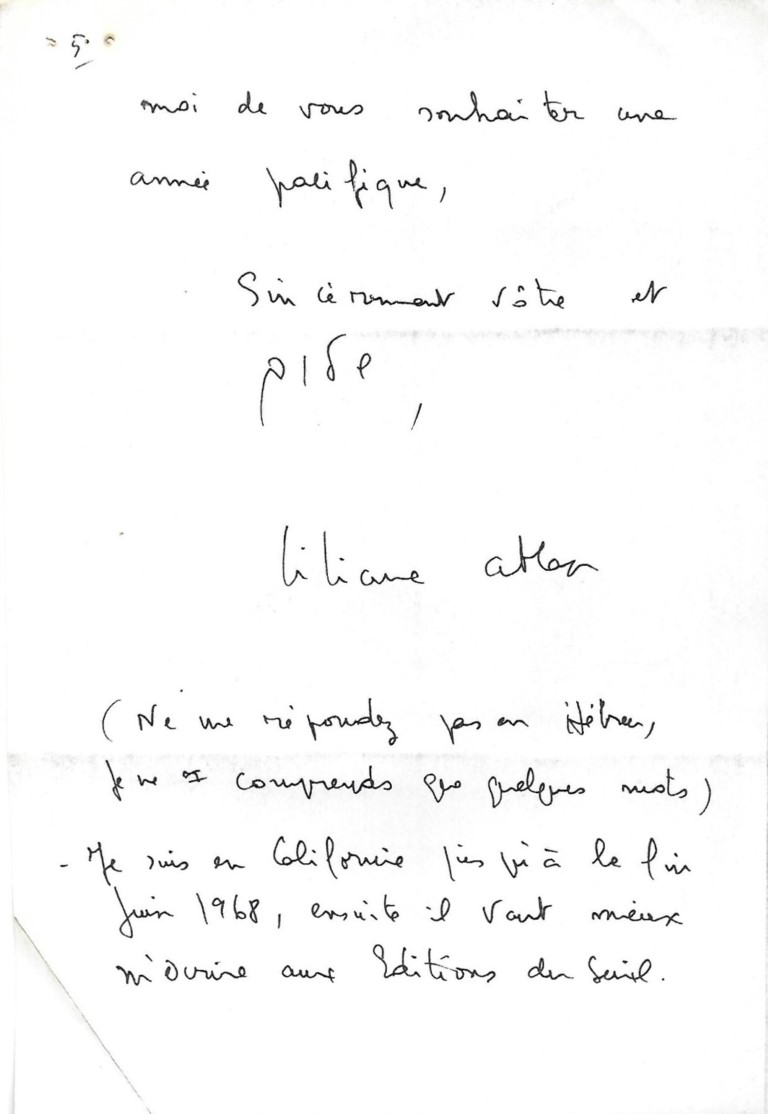 5.
moi de vous souhaiter une
année pacifique,
Sincèrement vôtre et
שלום,
liliane atlan
(Ne me répondez pas en Hébreu,
je ne comprends que quelques mots)
- Je suis en Californie jusqu'à la fin
Juin 1968, ensuite il vaut mieux
m'écrire aux Editions du Seuil.